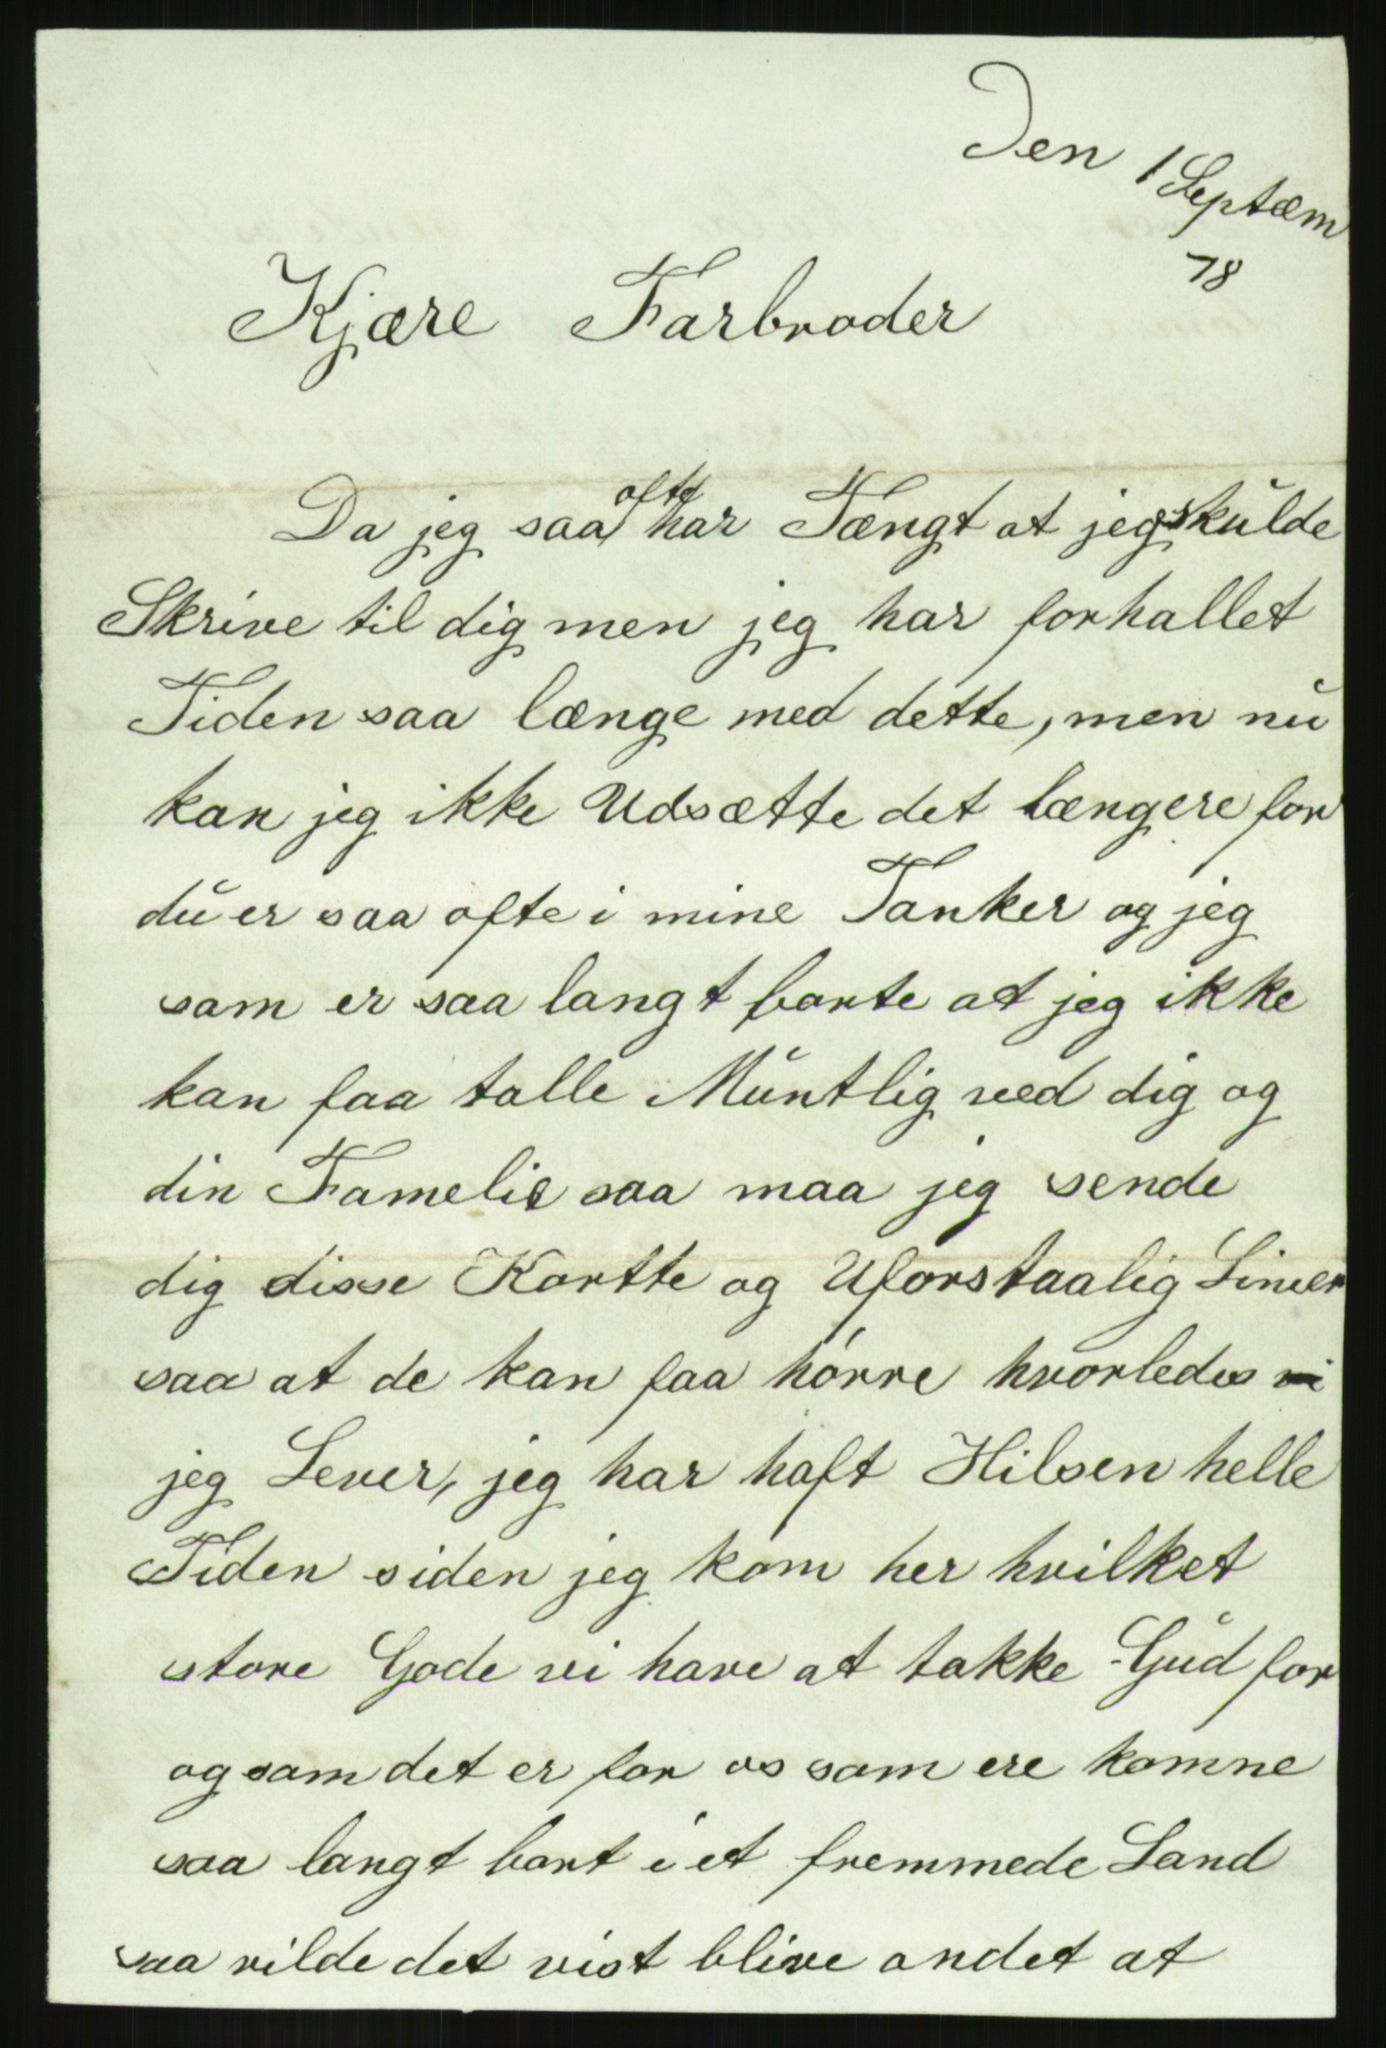 Den 1 Septæm
78
Kjære Farbroder
Da jeg saa ofte har Tængt at jeg skulde
Skrive til dig men jeg har forhallet
Tiden saa længe med dette, men nu
kan jeg ikke Udsætte det længere for
du er saa ofte i mine Tanker og jeg
som er saa langt borte at jeg ikke
kan faa talle Muntlig ved dig og
din Famelie saa maa jeg sende
dig disse Kortte og Uforstaalig Linier
saa at de kan faa hørre hvorledes vi
jeg Lever, jeg har haft Hilsen helle
Tiden siden jeg kom her hvilket
store Gode vi have at takke Gud for
og som det er for os som ere komne
saa langt bort i et fremmede Land
saa vilde det vist blive andet at